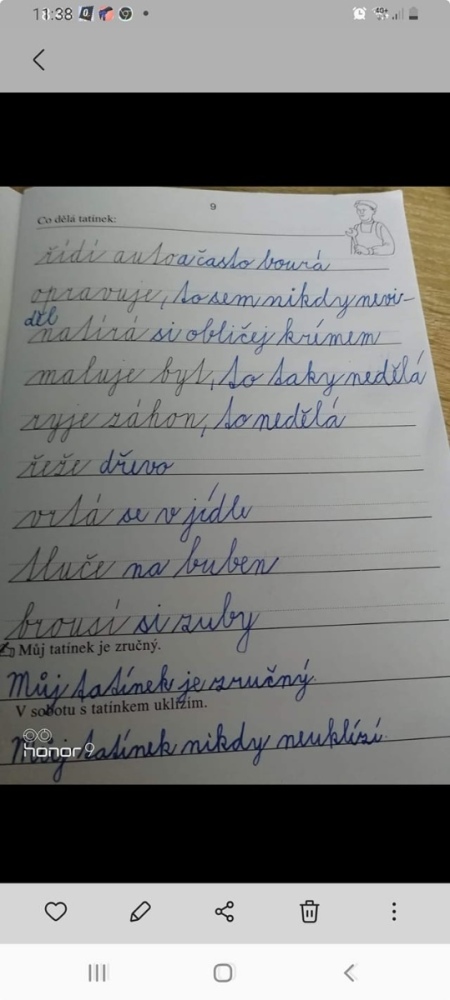 11:38
9
Co dělá tatínek:
řídí auto a často bourá
opravuje, to sem nikdy nevi-
děl
natírá si obličej krímem
maluje byt, to taky nedělá
ryje záhon, to nedělá
řeže dřevo
vrtá se v jídle
tluče na buben
brousí si zuby
Můj tatínek je zručný.
Můj tatínek je zručný.
V sobotu s tatínkem uklízím.
Můj tatínek nikdy neuklízí.
honor 9